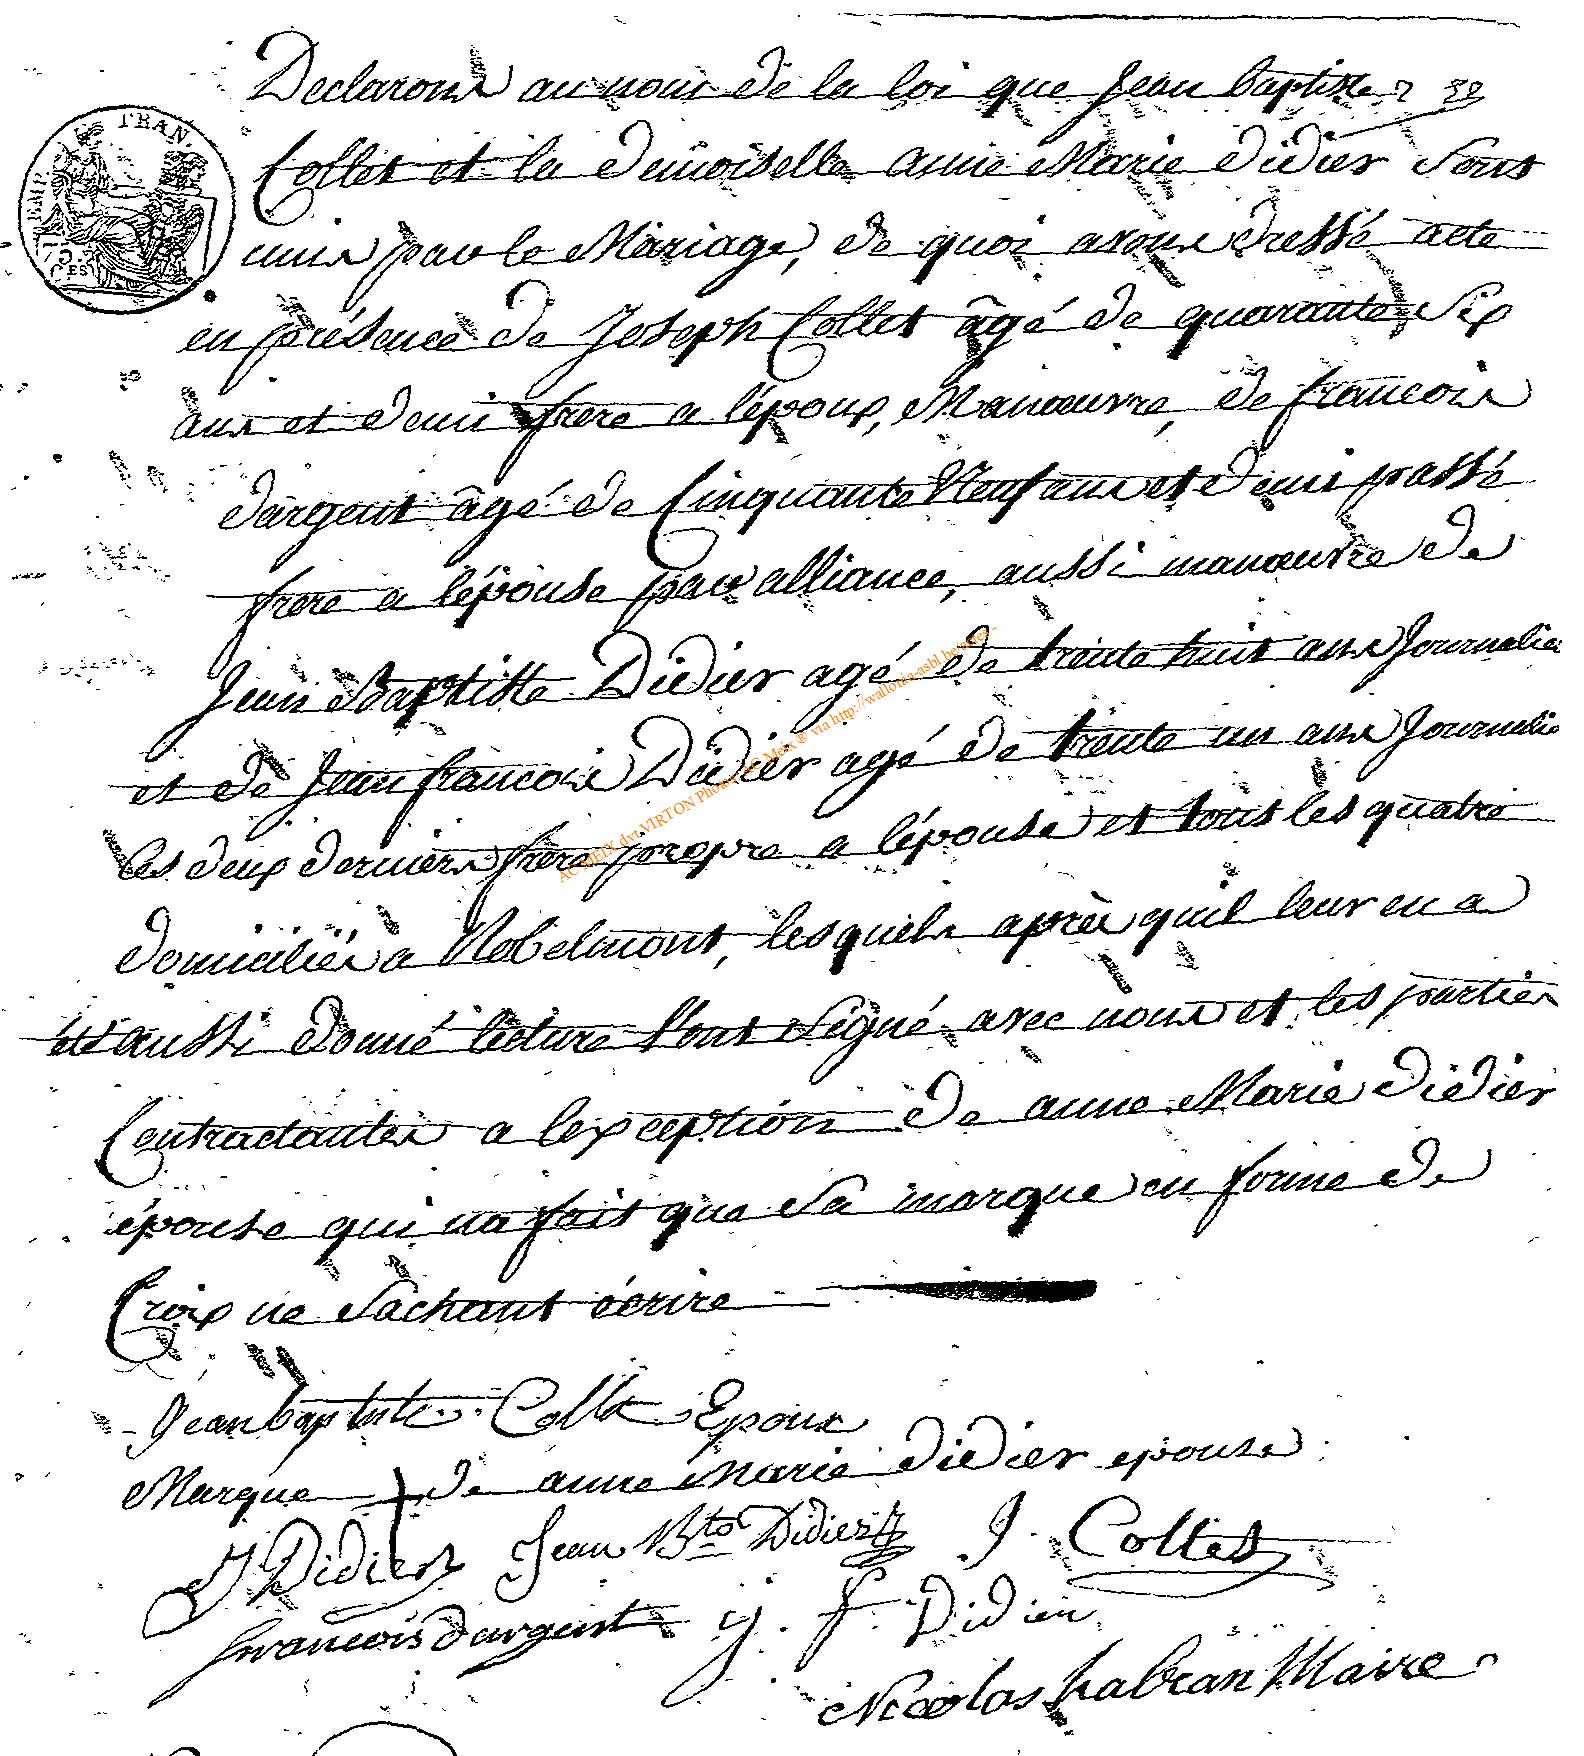 Declarons au nom de la loi que Jean baptiste
Collet et la demoiselle anne Marie didier sont
unis par le Mariage, de quoi avons dressé acte
en présence de Joseph Collet âgé de quarante six
ans et demi frere a l'époux, Manœuvre, de francois
dargent âgé de Cinquante Neuf ans et demi passé
frere a lépouse par alliance, aussi manœuvre de
Jean Baptiste Didier agé de trente huit ans Journalier
et de Jean francois Didier agé de trente un ans Journalie
les deux derniers frere propre a lépouse et tous les quatre
domiciliés a Robelmont, lesquels après quil leur en a
été aussi donné lecture l'ont signé avec nous et les parties
Contractantes a lexception de anne Marie didier
épouse qui na fait que sa marque en forme de
Croix ne sachant écrire
Jean baptiste Collet Epoux
Marque de anne Marie didier epouse
J Didier Jean Bte Didier J. Collet
francois dargent j. f. Didier
Nicolas habran Maire
EMP. FRAN.
75
CES
via http://wallonia-asbl.be/